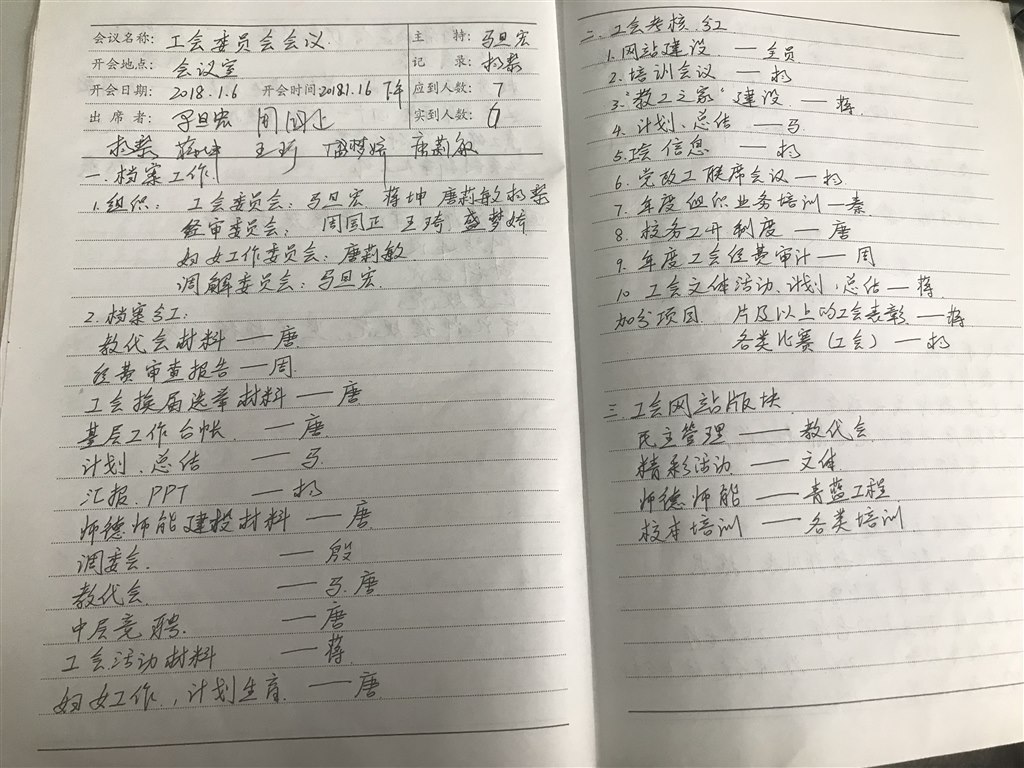 会议名称: 工会委员会会议 主 持: 马旦宏
开会地点: 会议室 记 录: 杨蓁
开会日期: 2018.1.6 开会时间: 2018.1.16 下午 应到人数: 7
出 席 者: 马旦宏 周国正 实到人数:
杨蓁 蒋坤 王琦 盛梦娇 唐莉敏
一. 档案工作
1. 组织: 工会委员会: 马旦宏 蒋坤 唐莉敏 杨蓁
经审委员会: 周国正 王琦 盛梦娇
妇女工作委员会: 唐莉敏
调解委员会: 马旦宏
2. 档案分工:
教代会材料 — 唐
经费审查报告 — 周
工会换届选举材料 — 唐
基层工作台帐 — 唐
计划、总结 — 马
汇报 PPT — 杨
师德师能建设材料 — 唐
调委会 — 殷
教代会 — 马.唐
中层竞聘 — 唐
工会活动材料 — 蒋
妇女工作,计划生育 — 唐
二. 工会考核分工
1. 网站建设 — 全员
2. 培训会议 — 杨
3. "教工之家"建设 — 蒋
4. 计划、总结 — 马
5. 工会信息 — 杨
6. 党政工联席会议 — 杨
7. 年度组织业务培训 — 秦
8. 校务公开制度 — 唐
9. 年度工会经费审计 — 周
10. 工会文体活动、计划、总结 — 蒋
加分项目 片及以上的工会表彰 — 蒋
各类比赛(工会) — 杨
三. 工会网站版块
民主管理 — 教代会
精彩活动 — 文体
师德师能 — 青蓝工程
校本培训 — 各类培训